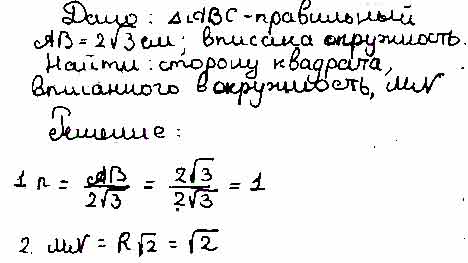 Дано: △ABC - правильный
AB = 2√3 см; вписана окружность.
Найти: сторону квадрата,
вписанного в окружность, MN
Решение:
1 r = AB / 2√3 = 2√3 / 2√3 = 1
2. MN = R√2 = √2